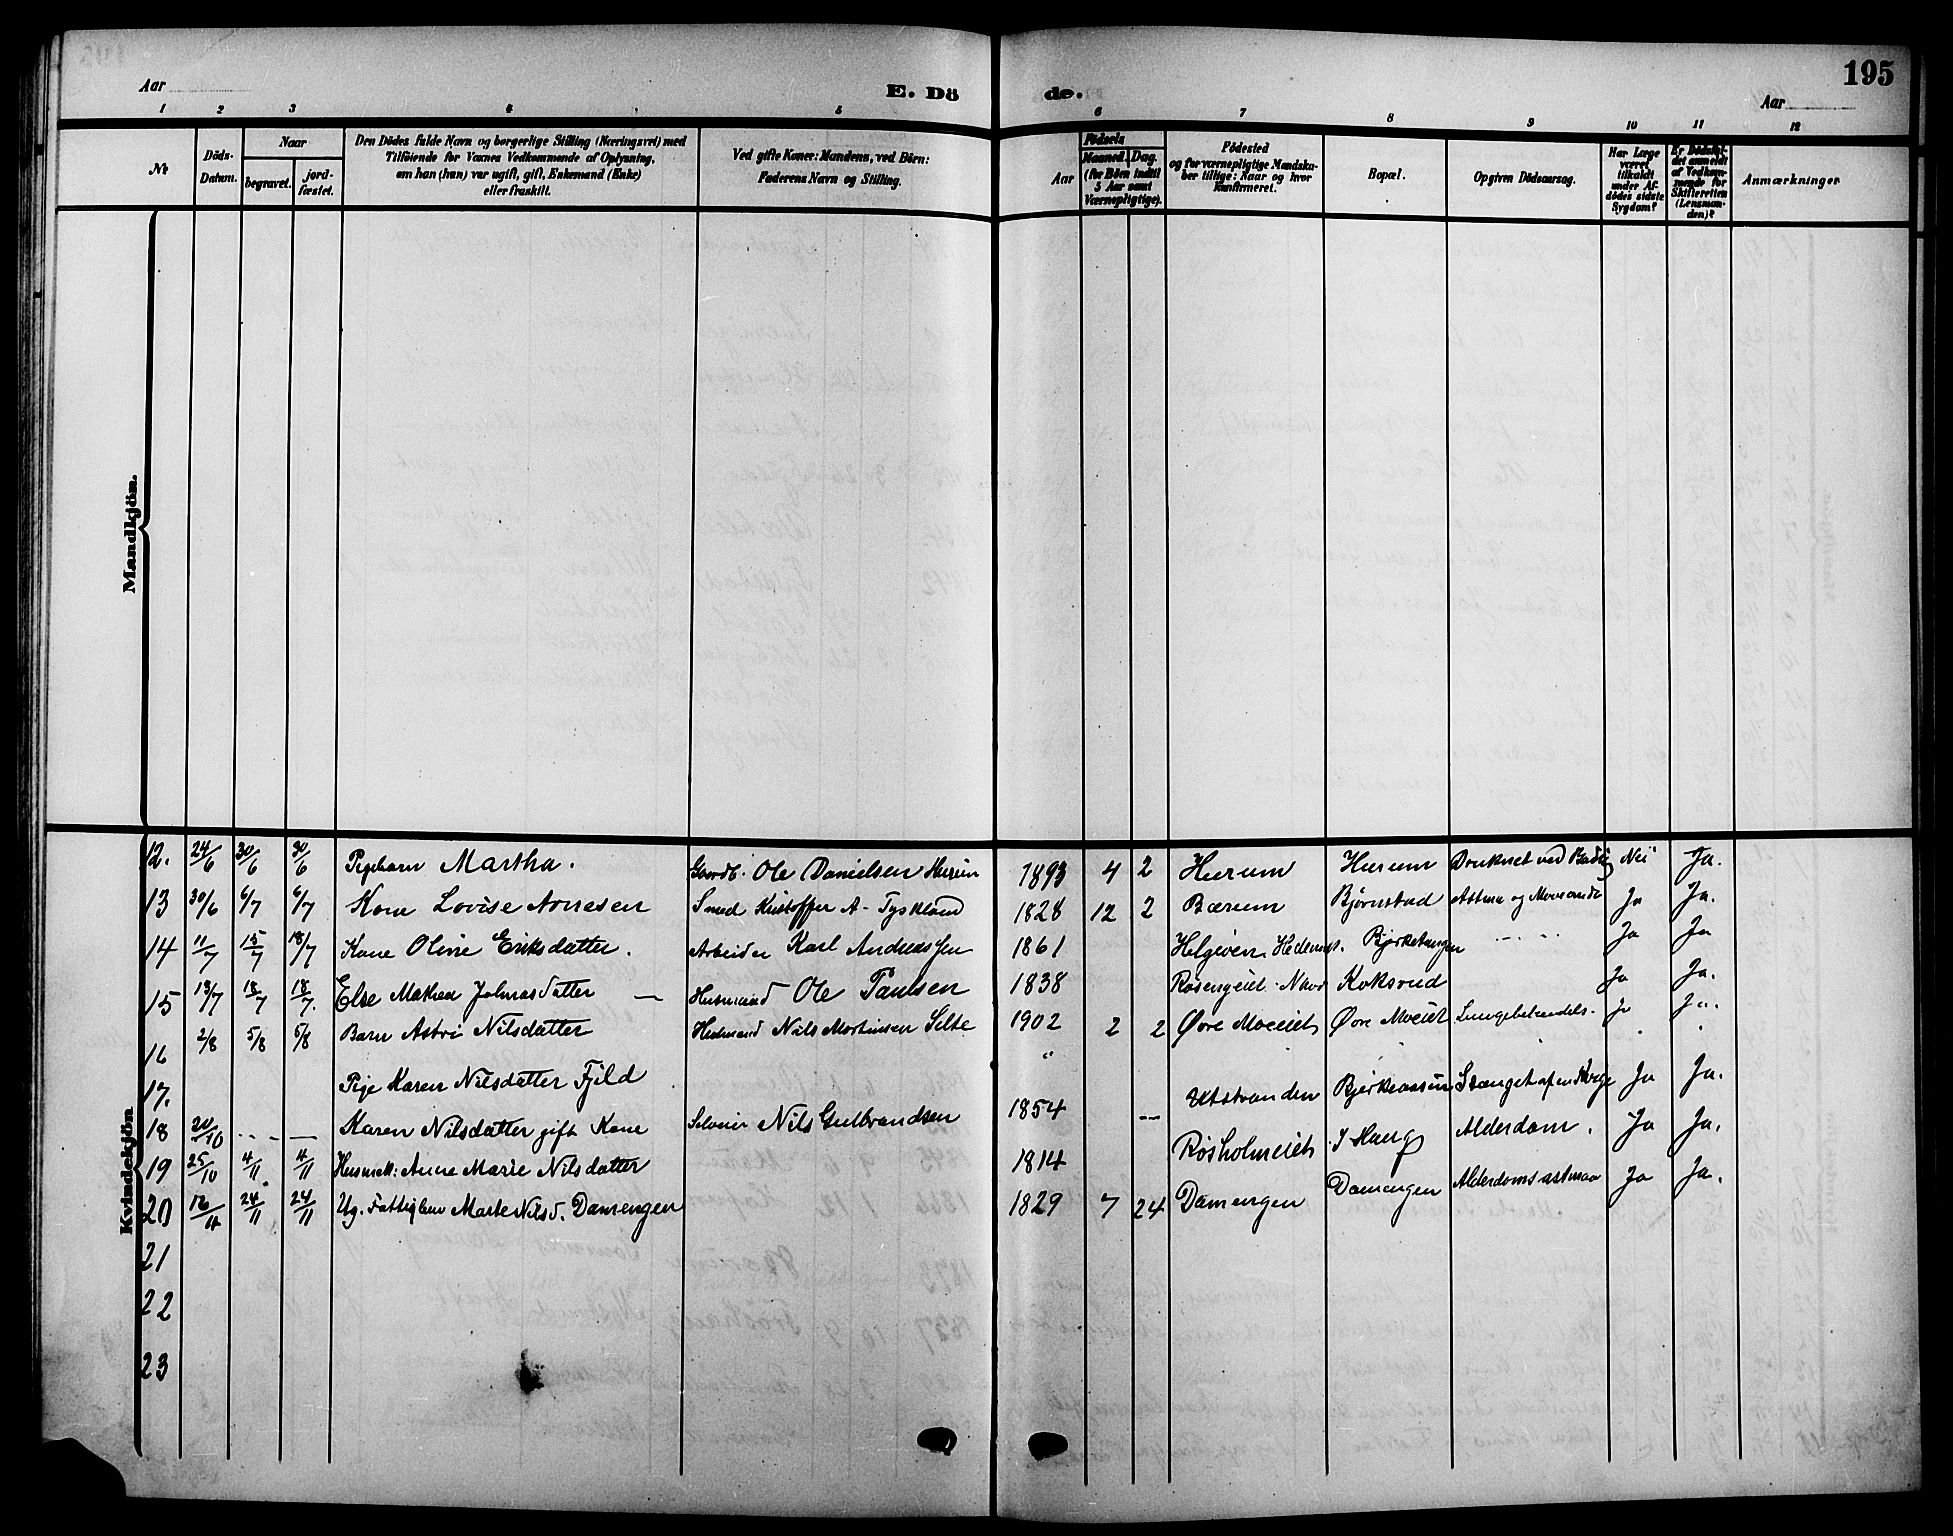 195
Aar
E. Dö
de.
Aar
1 2 3 4 5 6 7 8 9 10 11 12
Nr
Döds-Datum.
Naar
begravet.
jord-fæstet.
Den Dödes fulde Navn og borgerlige Stilling (Næringsvei) med
Tilföiende for Voxnes Vedkommende af Oplysning,
om han (hun) var ugift, gift, Enkemand (Enke)
eller fraskilt.
Ved gifte Koner: Mandens, ved Börn:
Faderens Navn og Stilling.
Födsels
Aar
Maaned. Dag.
(for Börn indtil
5 Aar samt
Værnepligtige).
Födested
og for værnepligtige Mandska-
ber tillige: Naar og hvor
Konfirmeret.
Bopæl.
Opgiven Dödsaarsag.
Har Læge
været
tilkaldt
under Af-
dödes sidste
Sygdom?
Er Dödsfal-
det anmeldt
af Vedkom-
mende for
Skifteretten
(Lensman-
den)?
Anmærkninger
Mandkjön.
Kvindekjön
12. 24/6 30/6 30/6 Pigebarn Martha. Gaardb. Ole Danielsen Hurum 1893 4 2 Hurum Hurum Druknet ved Nei Ja.
13 30/6 6/7 6/7 Kone Lovise Arnesen Smed Kristoffer A- Tyskland 1828 12 2 Bærum Bjørnstad Astma og Ja Ja.
14 11/7 15/7 18/7 Kone Oline Eriksdatter. Arbeider Karl Andreassen 1861 Bjerketangen Ja Ja
15 13/7 18/7 18/7. Else Mathea Johnsdatter — Husmand Ole Paulsen 1838 Koksrud Ja Ja.
16 2/8 5/8 5/8 Barn Astri Nilsdatter Nils Mortinsen 1902 2 2 Øvre Moeiet Øvre Moeiet Ja Ja.
17. Pige Karen Nilsdatter Fjeld "
18 20/10 — — Karen Nilsdatter gift Kone Nils Gulbrandsen 1854 — Utstranden Ja Ja.
19 25/10 4/11 4/11 Anne Marie Nilsdatter 1814 Røsholmeiet Haug Alderdom. Ja Ja.
20 16/11 24/11 24/11 Ug. Fattiglem Marte Nilsd. Damengen 1829 7 24 Damengen Damengen Alderdoms astma Ja Ja.
21
22
23